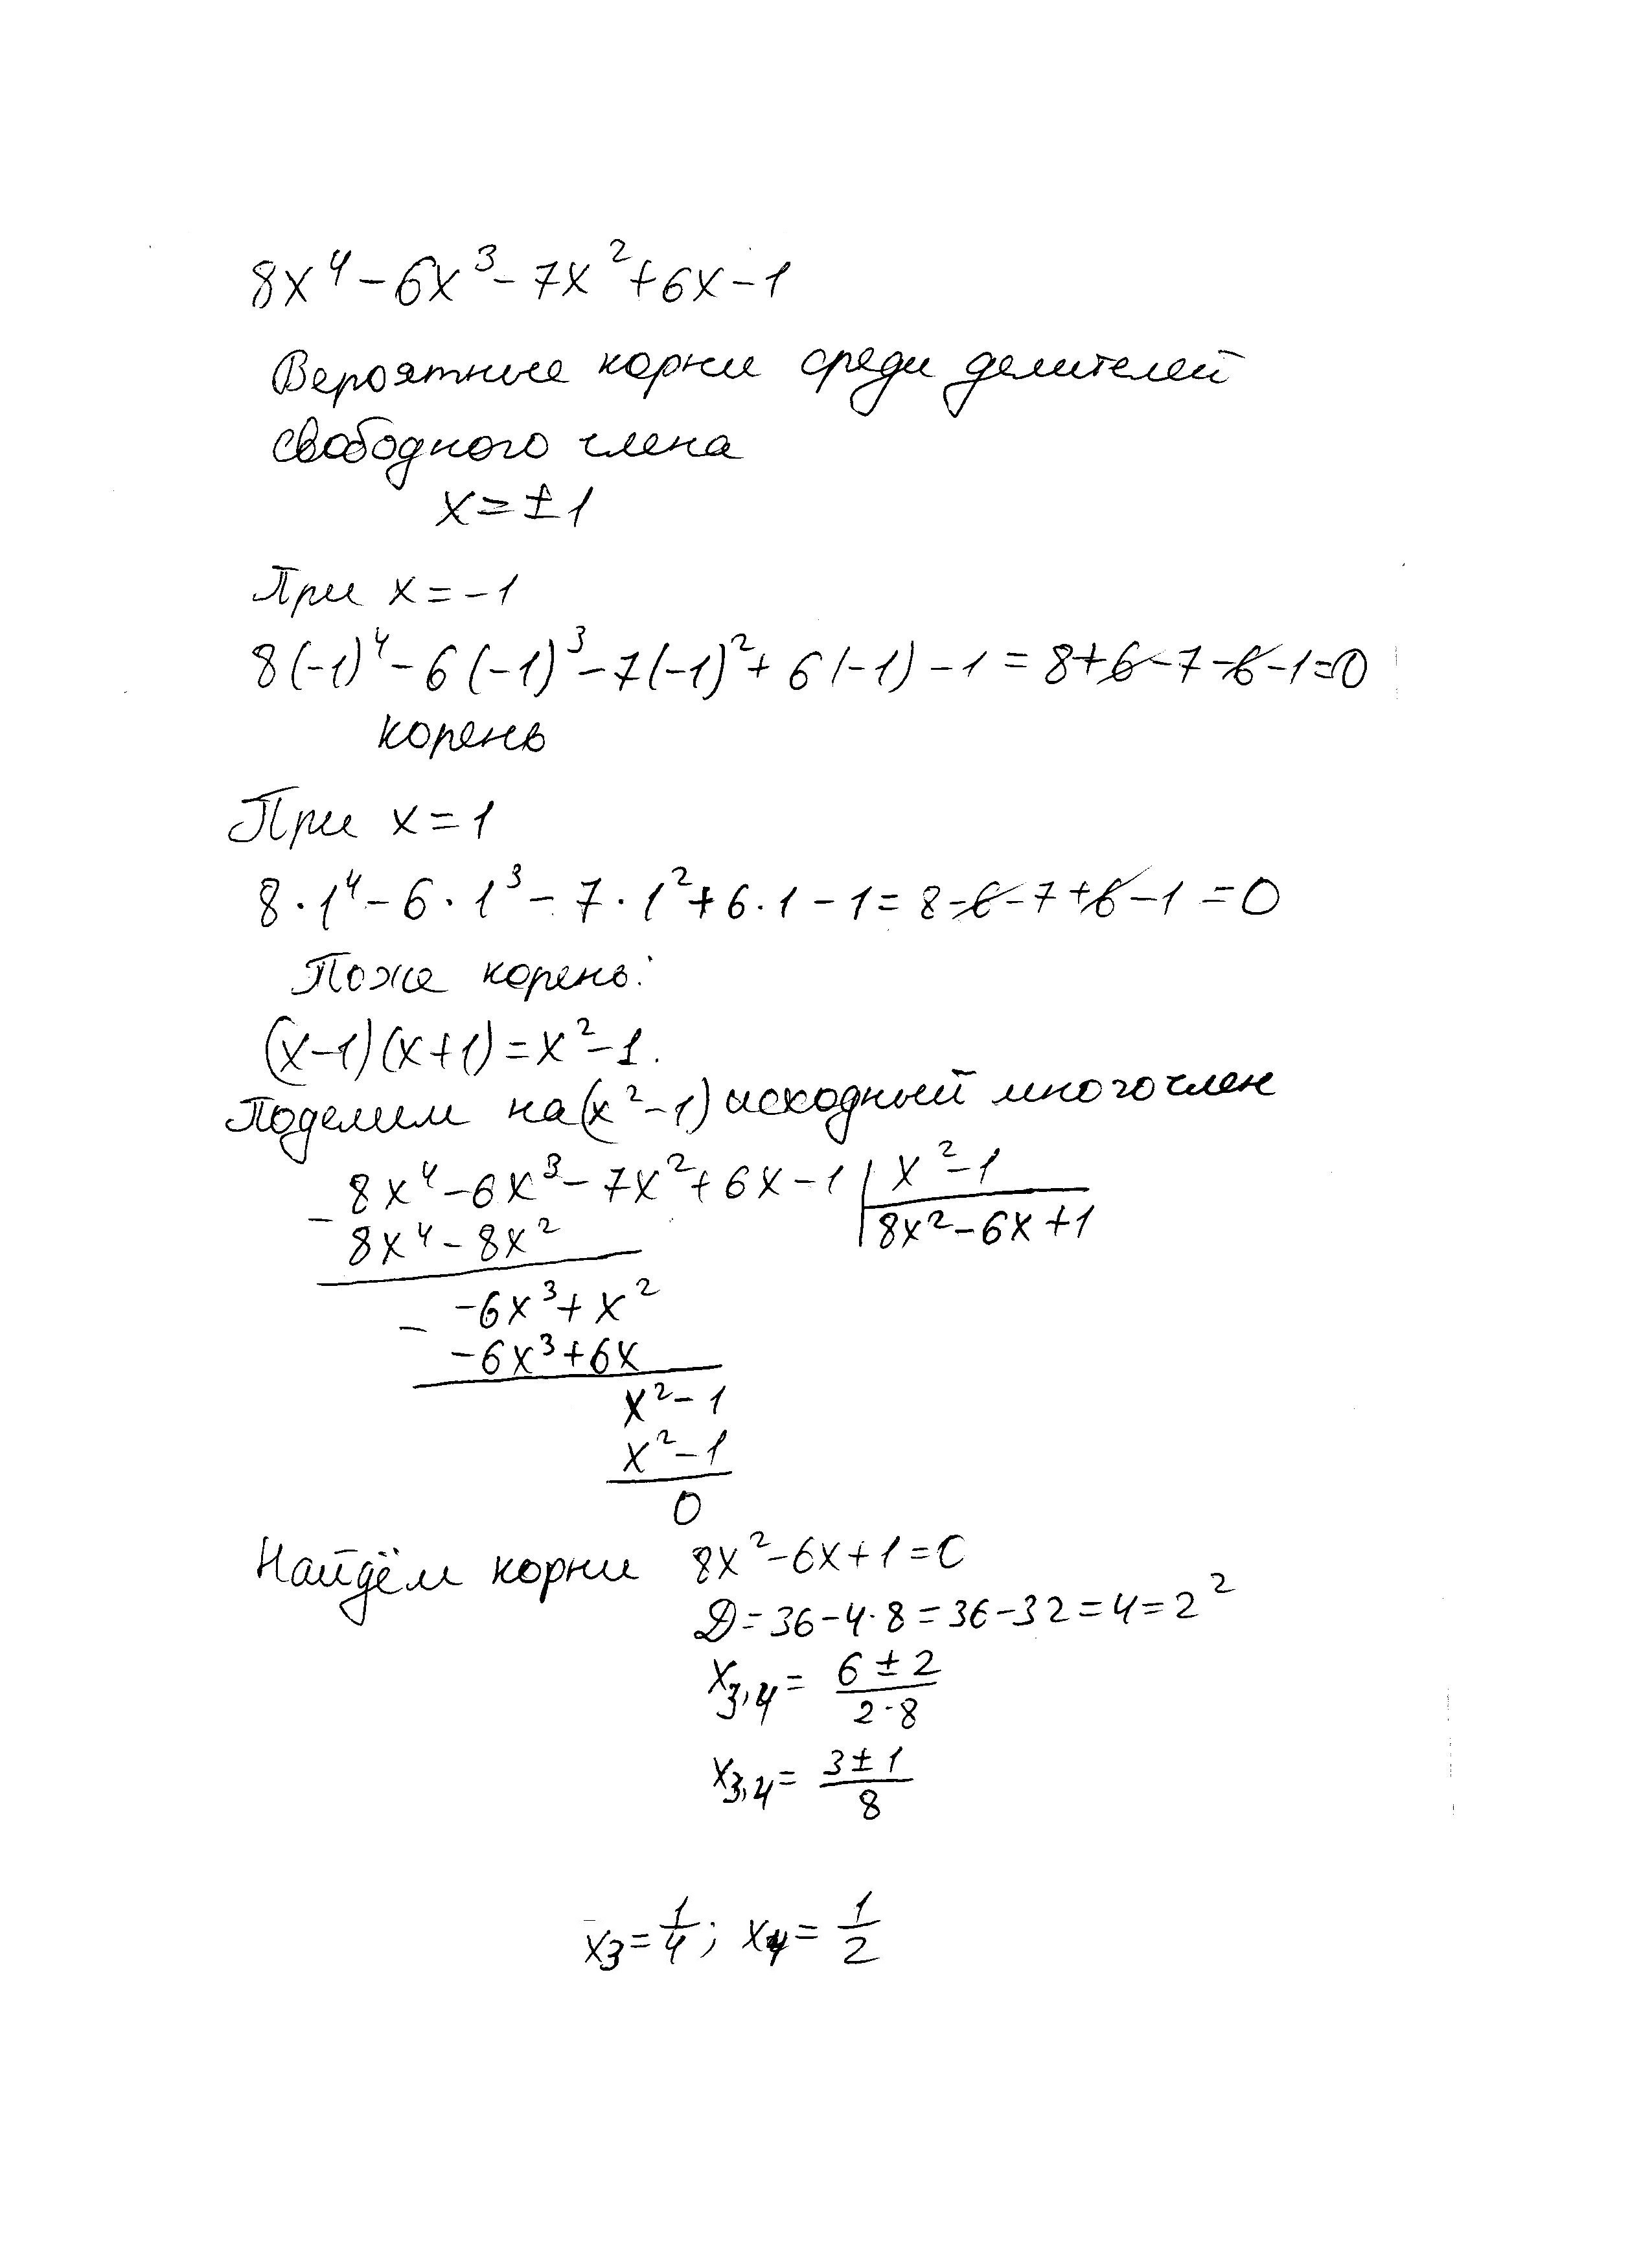 8x⁴-6x³-7x²+6x-1
Вероятные корни среди делителей
свободного члена
x=±1
При x=-1
8(-1)⁴-6(-1)³-7(-1)²+6(-1)-1=8+6-7-6-1=0
корень
При x=1
8·1⁴-6·1³-7·1²+6·1-1=8-6-7+6-1=0
Тоже корень:
(x-1)(x+1)=x²-1.
Поделим на (x²-1) исходный многочлен
8x⁴-6x³-7x²+6x-1 | x²-1
8x⁴-8x² | 8x²-6x+1
-6x³+x²
-6x³+6x
x²-1
x²-1
0
Найдём корни 8x²-6x+1=0
D=36-4·8=36-32=4=2²
x₃,₄= (6±2)/(2·8)
x₃,₄= (3±1)/8
x₃=1/4; x₄=1/2